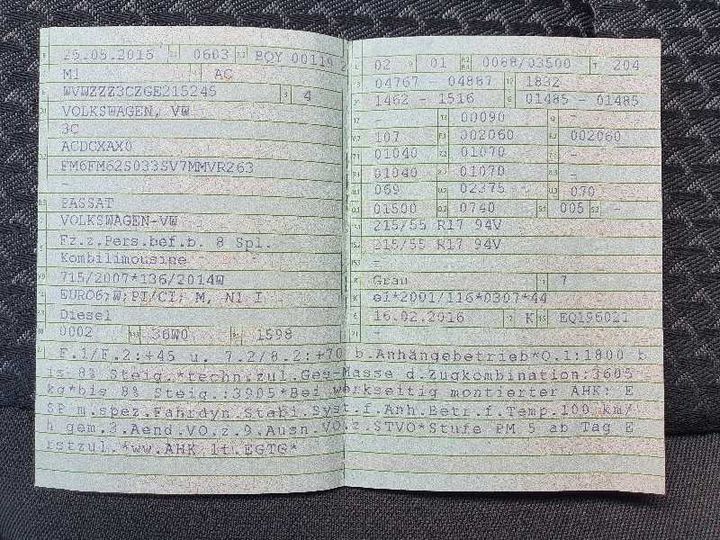 25.05.2015 0603 BQY 00119 2
M1 AC
WVWZZZ3CZGE215245 4
VOLKSWAGEN, VW
3C
ACDCXAX0
FM6FM62S033SV7MMVR263
-
PASSAT
VOLKSWAGEN-VW
Fz.z.Pers.bef.b. 8 Spl.
Kombilimousine
715/2007*136/2014W
EURO6;W;PI/CI; M, N1 I
Diesel
0002 36W0 1598
02 01 0088/03500 204
04767 - 04887 1832
1462 - 1516 01485 - 01485
- 00090 -
107 002060 002060
01040 01070 -
01040 01070 -
069 02375 070
01500 0740 005 -
215/55 R17 94V
215/55 R17 94V
-
Grau 7
e1*2001/116*0307*44
16.02.2016 K EQ196021
F.1/F.2:+45 u. 7.2/8.2:+70 b.Anhängebetrieb*O.1:1800 b
is 8% Steig.*techn.zul.Ges-Masse d.Zugkombination:3605
kg*bis 8% Steig.:3905*Bei werkseitig montierter AHK: E
SP m.spez.Fahrdyn.Stabi.Syst.f.Anh.Betr.f.Temp.100 km/
h gem.3.Aend.VO.z.9.Ausn.VO.z.STVO*Stufe PM 5 ab Tag E
rstzul.*ww.AHK lt.EGTG*